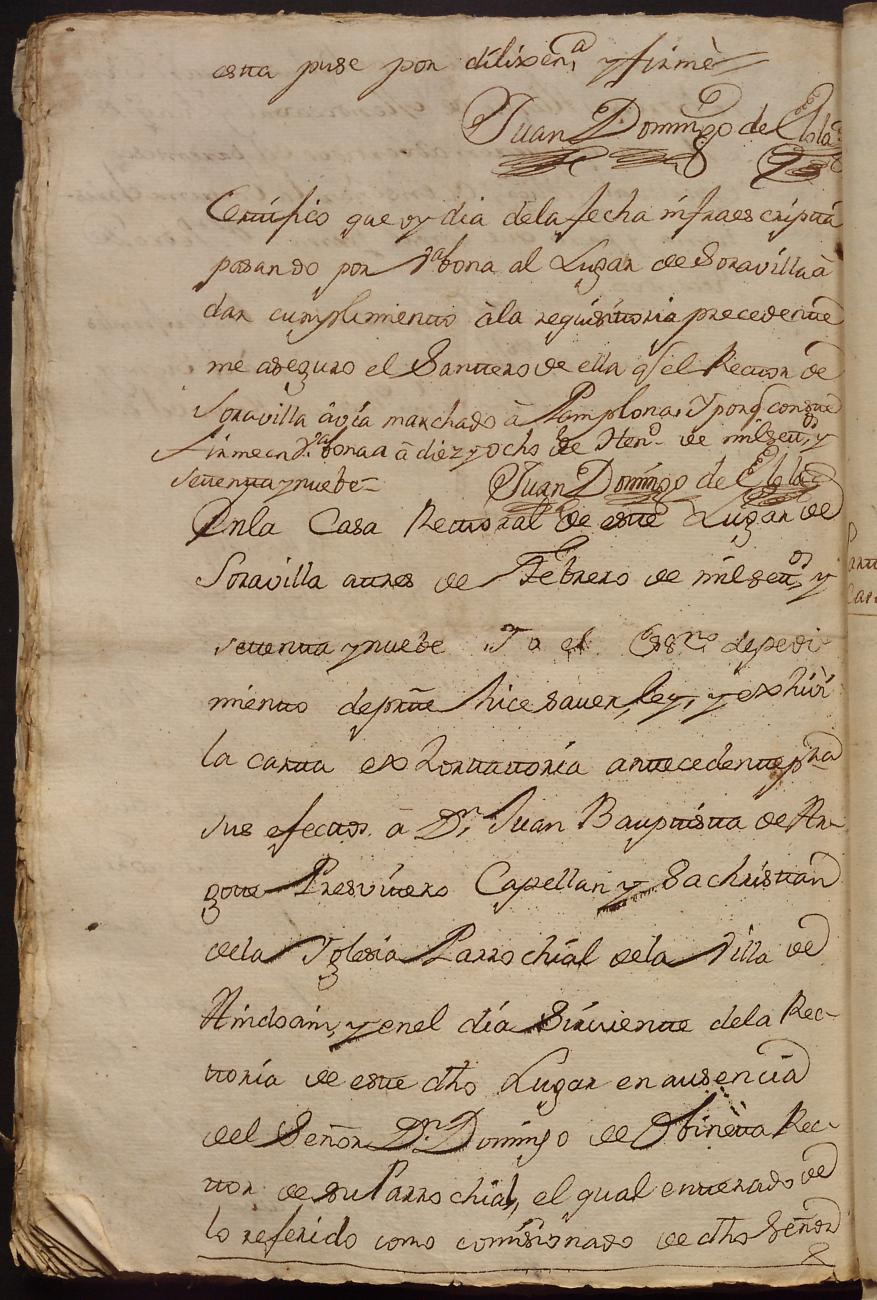 esta puse por dilixen.ª y firmè
Juan Domingo de Elola
Certifico que oy dia dela fecha infraescripta
pasando por V.ª bona al Lugar de Soravilla à
dar cumplimiento àla requisitoria precedente
me aseguro el Santero de ella q.e el Rector de
Soravilla àvia marchado à Pamplona, Y porq conste
firme en V.ª bona a diez y ocho de Hen.o de mil set.os y
setenta y nuebe
Juan Domingo de Elola
Enla Casa Rectoral de este Lugar de
Soravilla atres de Febrero de mil set.os y
setenta y nuebe Yo el Es.no de pedi
miento de p.rte hice saver, ley, y exhivi
la carta exhortatoria antecedente p.ra
sus efectos à D.n Juan Bauptista de Ar-
gote Presvitero Capellan y Sachristan
dela Yglesia Parrochial dela Villa de
Andoain, y enel dia Sirviente dela Rec-
toria de este dho Lugar en ausencia
del Señor D.n Domingo de Obineta Rec-
tor de su Parrochial, el qual enterado de
lo referido como comisionado de dho Señor